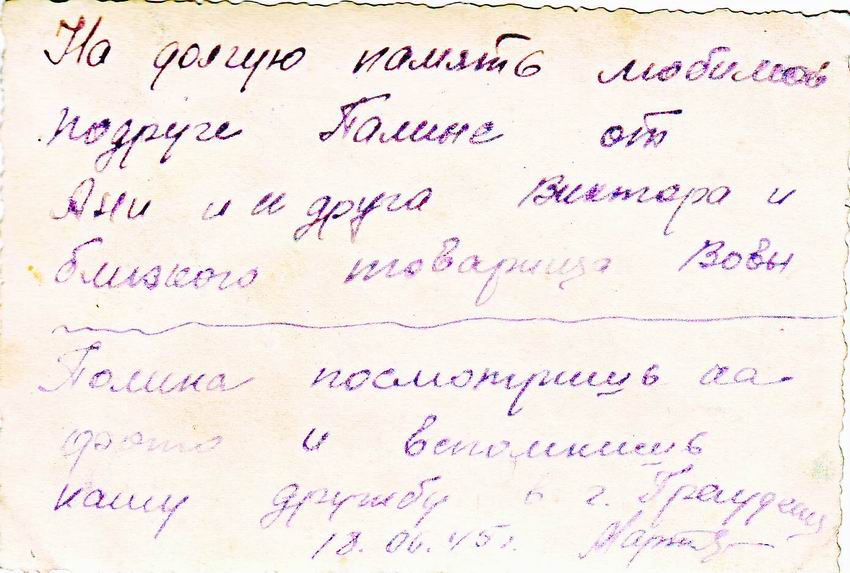 На долгую память любимой
подруге Палине от
Ани и и друга Виктора и
близкого товарища Вовы
Полина посмотришь на
фото и вспомнишь
нашу дружбу в г. Грауденц
18.06.45 г.